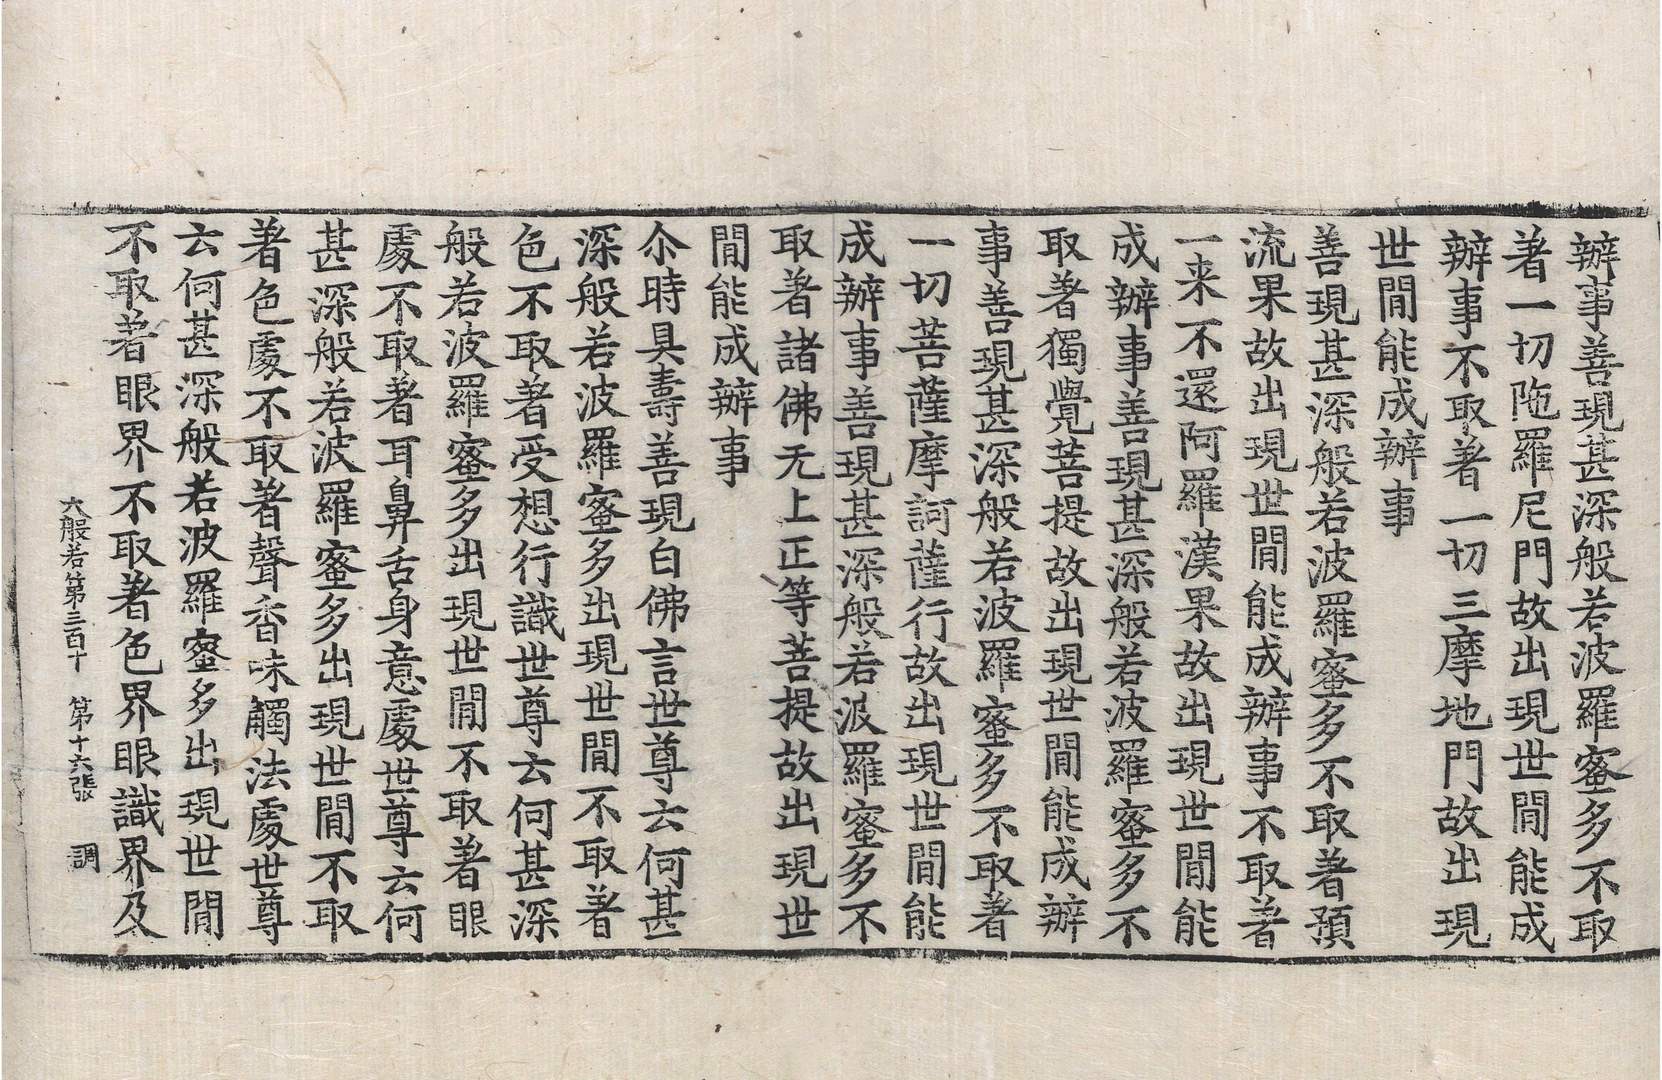 辦事善現甚深般若波羅蜜多不取
著一切陁羅尼門故出現世閒能成
辦事不取著一切三摩地門故出現
世閒能成辦事
善現甚深般若波羅蜜多不取著預
流果故出現世閒能成辦事不取著
一来不還阿羅漢果故出現世閒能
成辦事善現甚深般若波羅蜜多不
取著獨覺菩提故出現世閒能成辦
事善現甚深般若波羅蜜多不取著
一切菩薩摩訶薩行故出現世閒能
成辦事善現甚深般若波羅蜜多不
取著諸佛无上正等菩提故出現世
閒能成辦事
尒時具壽善現白佛言世尊云何甚
深般若波羅蜜多出現世閒不取著
色不取著受想行識世尊云何甚深
般若波羅蜜多出現世閒不取著眼
處不取著耳鼻舌身意處世尊云何
甚深般若波羅蜜多出現世閒不取
著色處不取著聲香味觸法處世尊
云何甚深般若波羅蜜多出現世閒
不取著眼界不取著色界眼識界及
大般若第三百十　第十六張　調